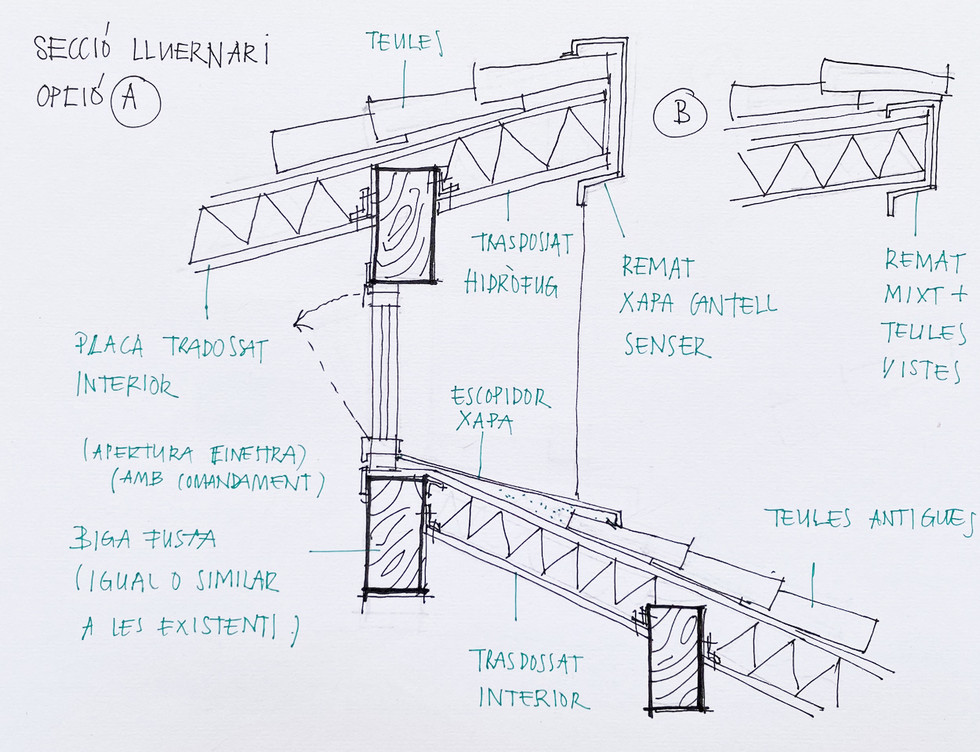 SECCIÓ LLUERNARI
OPCIÓ A
TEULES
B
TRASDOSSAT
HIDRÒFUG
REMAT
XAPA CANTELL
SENSER
REMAT
MIXT +
TEULES
VISTES
PLACA TRADOSSAT
INTERIOR
ESCOPIDOR
XAPA
(APERTURA FINESTRA)
(AMB COMANDAMENT)
TEULES ANTIGUES
BIGA FUSTA
(IGUAL O SIMILAR
A LES EXISTENTS)
TRASDOSSAT
INTERIOR